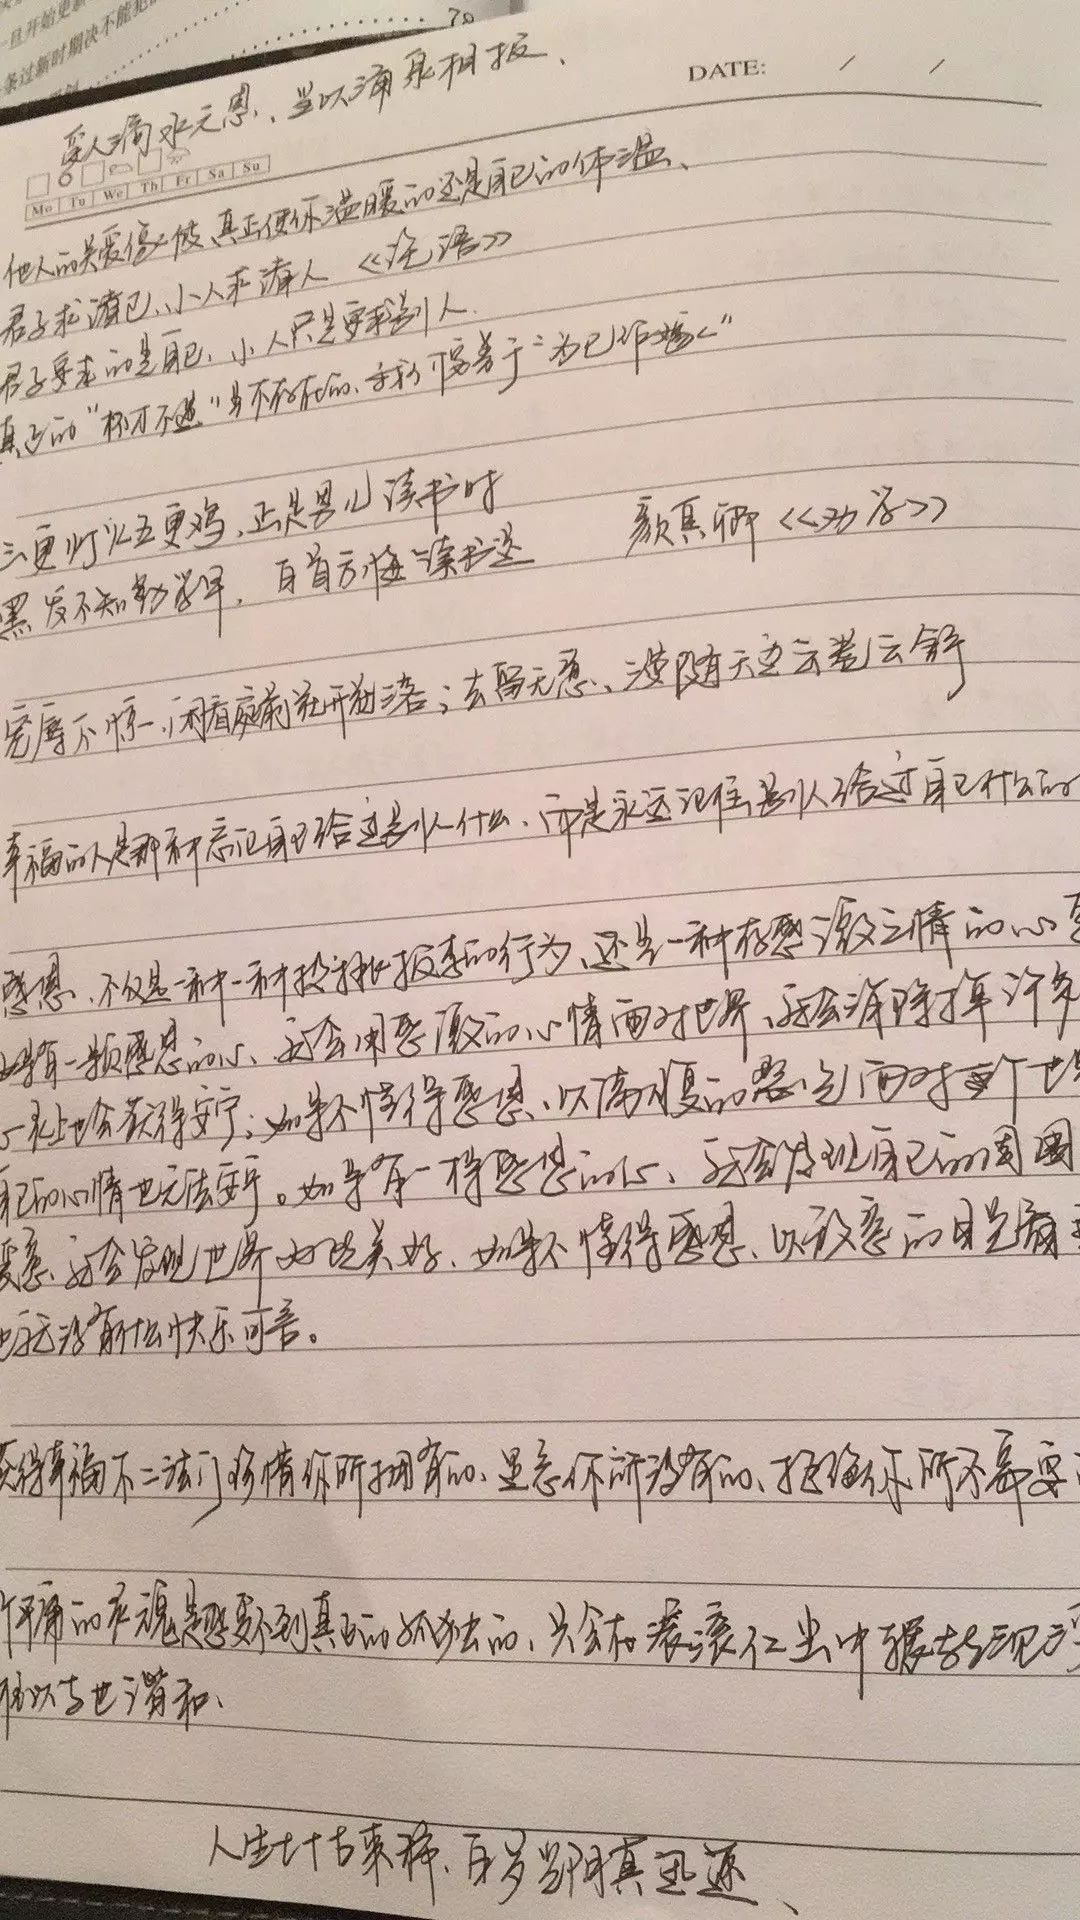 一旦开始更新
条过新时期决不能犯
70
DATE: / /
受人滴水之恩、当以涌泉相报、
Mo Tu We Th Fr Sa Su
他人的关爱像被、真正使你温暖的还是自己的体温、
君子求诸己、小人求诸人 《论语》
君子要求的是自己、小人只是要求别人.
真正的"怀才不遇"是不存在的、
三更灯火五更鸡、正是男儿读书时 颜真卿《劝学》
黑发不知勤学早, 白首方悔读书迟
宠辱不惊、闲看庭前花开花落；去留无意、漫随天边云卷云舒
幸福的人是那种忘记自己给过别人什么、而是永远记住别人给过自己什么的
感恩、不仅是一种一种投桃报李的行为、还是一种存感激之情的心
如果有一颗感恩的心、就会用感激的心情面对世界、就会消除掉许多
上也会获得安宁；如果不懂得感恩、以南复的怨气面对每个世界
自己的心情也无法安宁。如果有一样感恩的心、就会发现自己的周围
爱意、就会发现世界如此美好、如果不懂得感恩、以敌意的目光
也就没有什么快乐可言。
获得幸福不二法门珍惜你所拥有的、遗忘你所没有的、拒绝你所不需要
平庸的灵魂是感受不到真正的孤独的、只会在滚滚红尘中辗转沉浮
难以与世谐和、
人生七十古来稀、百岁光阴真迅速、